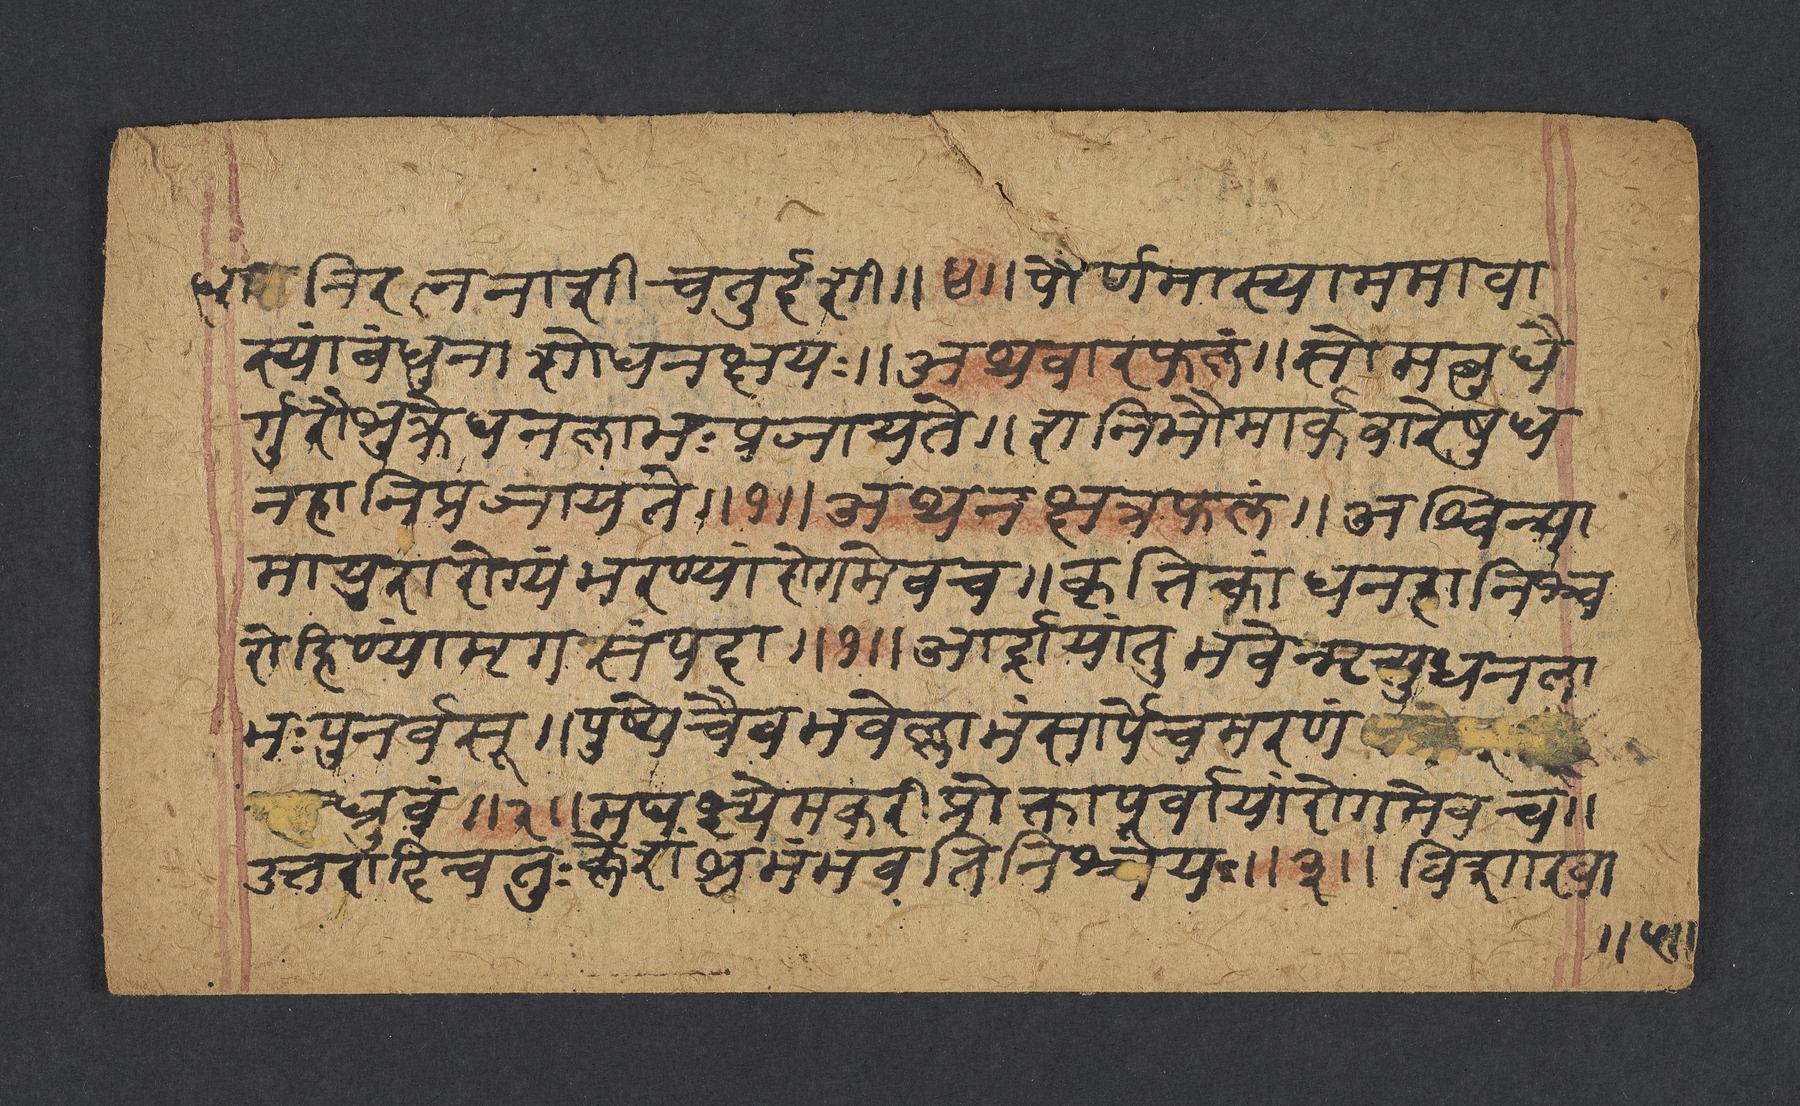 निरत्ननाशीचतुर्द्दशी॥ ४॥ पौर्णमास्याममावा
स्यांबंधुनाशोधनक्षयः॥ अथवारफलं॥ सोमबुधै
र्गुरौशुक्रेधनलाभःप्रजायते॥ शनिभौमार्कवारेषुध
नहानिप्रजायते॥१॥ अथनक्षत्रफलं॥ अश्विन्या
मायुरारोग्यंभरण्यांरोगमेवच॥ कृत्तिकांधनहानिश्च
रोहिण्यांमृगसंपदा॥१॥ आर्द्रायांतुभवेन्मृत्युधनला
भःपुनर्वसू॥ पुष्येचैवभवेल्लाभंसार्पेचमरणं
ध्रुवं॥२॥ प्रोक्तापूर्वायांरोगमेवच॥
उत्तरादिचतुः भवतिनिश्चयः॥३॥ विशाखा
॥५॥